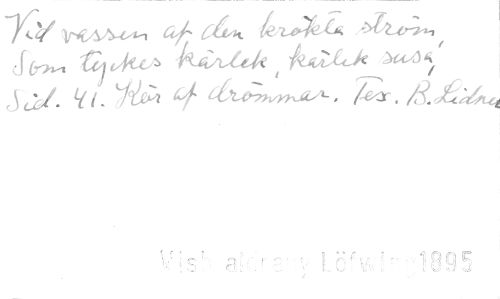 Vid vassen af den krökta ström,
Som tyckes kärlek, kärlek susa,
Sid. 41. Kör af drömmar. Tex. B. Lidner
Löfwing 1895